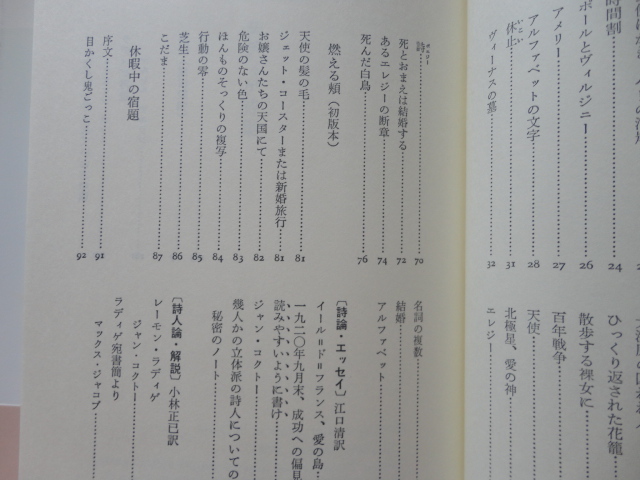 時間割
ポールとヴィルジニー
アメリー 26
アルファベットの文字 27
休止 28
いこい
ヴィーナスの墓 31
32
24
ひっくり返された花籠
散歩する裸女に
百年戦争
天使
北極星、愛の神
エレジー
詩 70
ポエジー
死とおまえは結婚する 72
あるエレジーの断章 74
死んだ白鳥 76
燃える頬(初版本)
天使の髪の毛 81
ジェット・コースターまたは新婚旅行 81
お嬢さんたちの天国にて 82
危険のない色 83
ほんものそっくりの複写 84
行動の零 85
芝生 86
こだま 87
休暇中の宿題
序文 91
目かくし鬼ごっこ 92
名詞の複数
結婚
アルファベット
〔詩論・エッセイ〕江口清訳
イール=ド=フランス、愛の島
一九二〇年九月末、成功への偏見
読みやすいように書け
ジャン・コクトー
幾人かの立体派の詩人についての
秘密のノート
〔詩人論・解説〕小林正巳訳
レーモン・ラディゲ
ジャン・コクトー
ラディゲ宛書簡より
マックス・ジャコブ